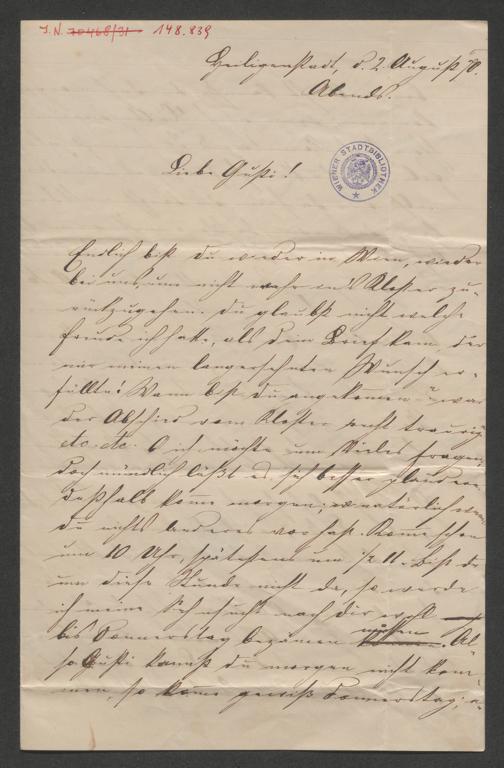 I. N. 70468/31 148.839
Heiligenstadt, d. 2. August 70.
Abends.
WIENER STADTBIBLIOTHEK
Liebe Gusti!
Endlich bist du wieder in Wien, wieder
bei uns, um nicht mehr in's Kloster zu-
rückzugehen. Du glaubst nicht welche
Freude ich hatte, als dein Brief kam der
mir meinen langersehnten Wunsch er-
füllte! Wann bist du angekommen u war
der Abschied vom Kloster recht traurig
etc. etc. O ich möchte um Vieles fragen,
doch mündlich läßt es sich besser plaudern
deßhalb kome morgen, natürlich wenn
du nichts Anderes vor hast. Kome schon
um 10 Uhr, spätestens um ½ 11. Bist du
um diese Stunde nicht da, so werde
ich meine Sehnsucht nach dir wohl
bis Donnerstag bezämen müssen. Al-
so Gusti kannst du morgen nicht kom-
men, so kome gewiß Donnerstag; a-